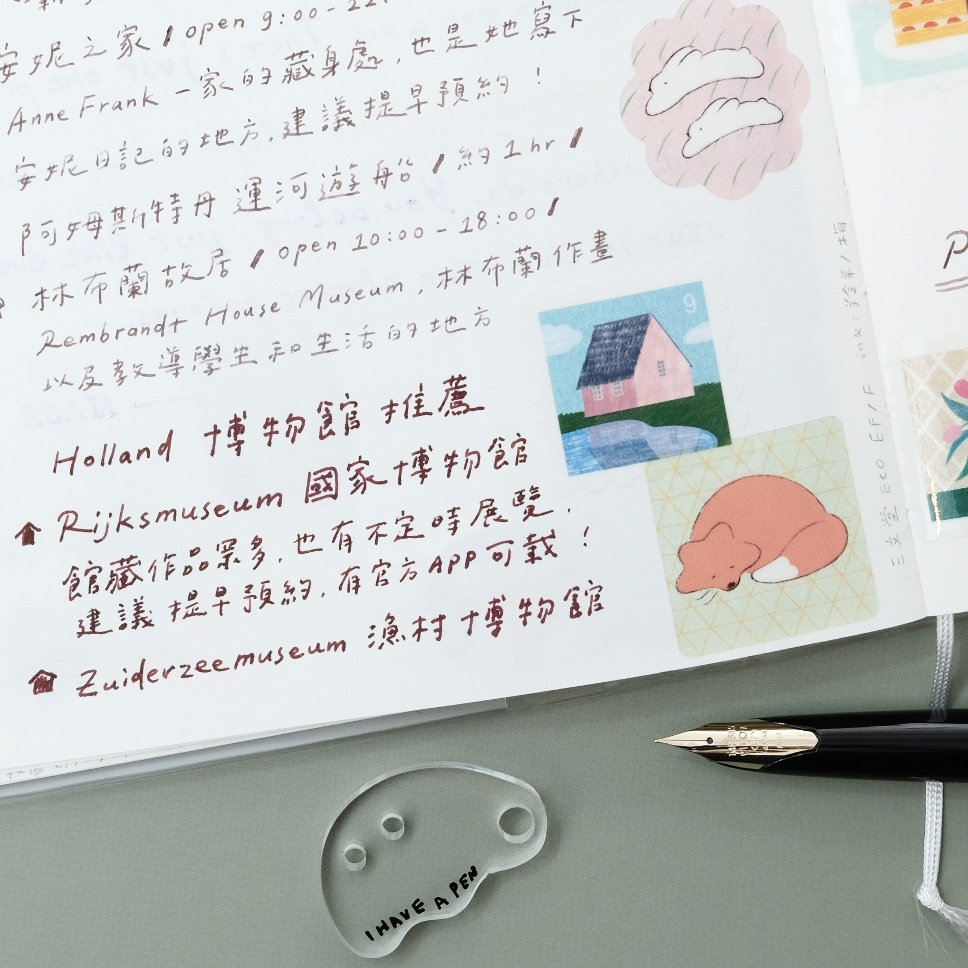 安妮之家 / open 9:00-22:
Anne Frank 一家的藏身處,也是她寫下
安妮日記的地方,建議提早預約！
阿姆斯特丹 運河遊船 / 約 1 hr /
林布蘭故居 / open 10:00-18:00 /
Rembrandt House Museum,林布蘭作畫
以及教導學生和生活的地方
Holland 博物館 推薦
Rijksmuseum 國家博物館
館藏作品眾多,也有不定時展覽,
建議提早預約,有官方APP可載！
Zuiderzeemuseum 漁村博物館
9
三文堂 Eco EF/F
I HAVE A PEN